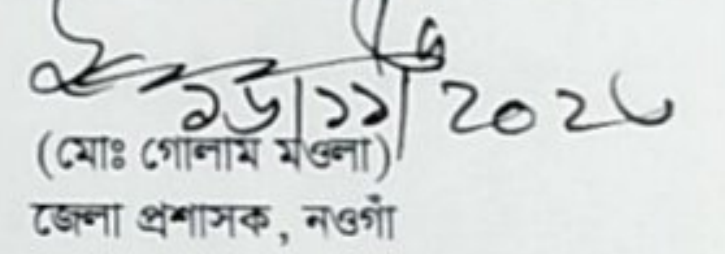 ১৬|১১|২০২৩
(মোঃ গোলাম মওলা)
জেলা প্রশাসক, নওগাঁ